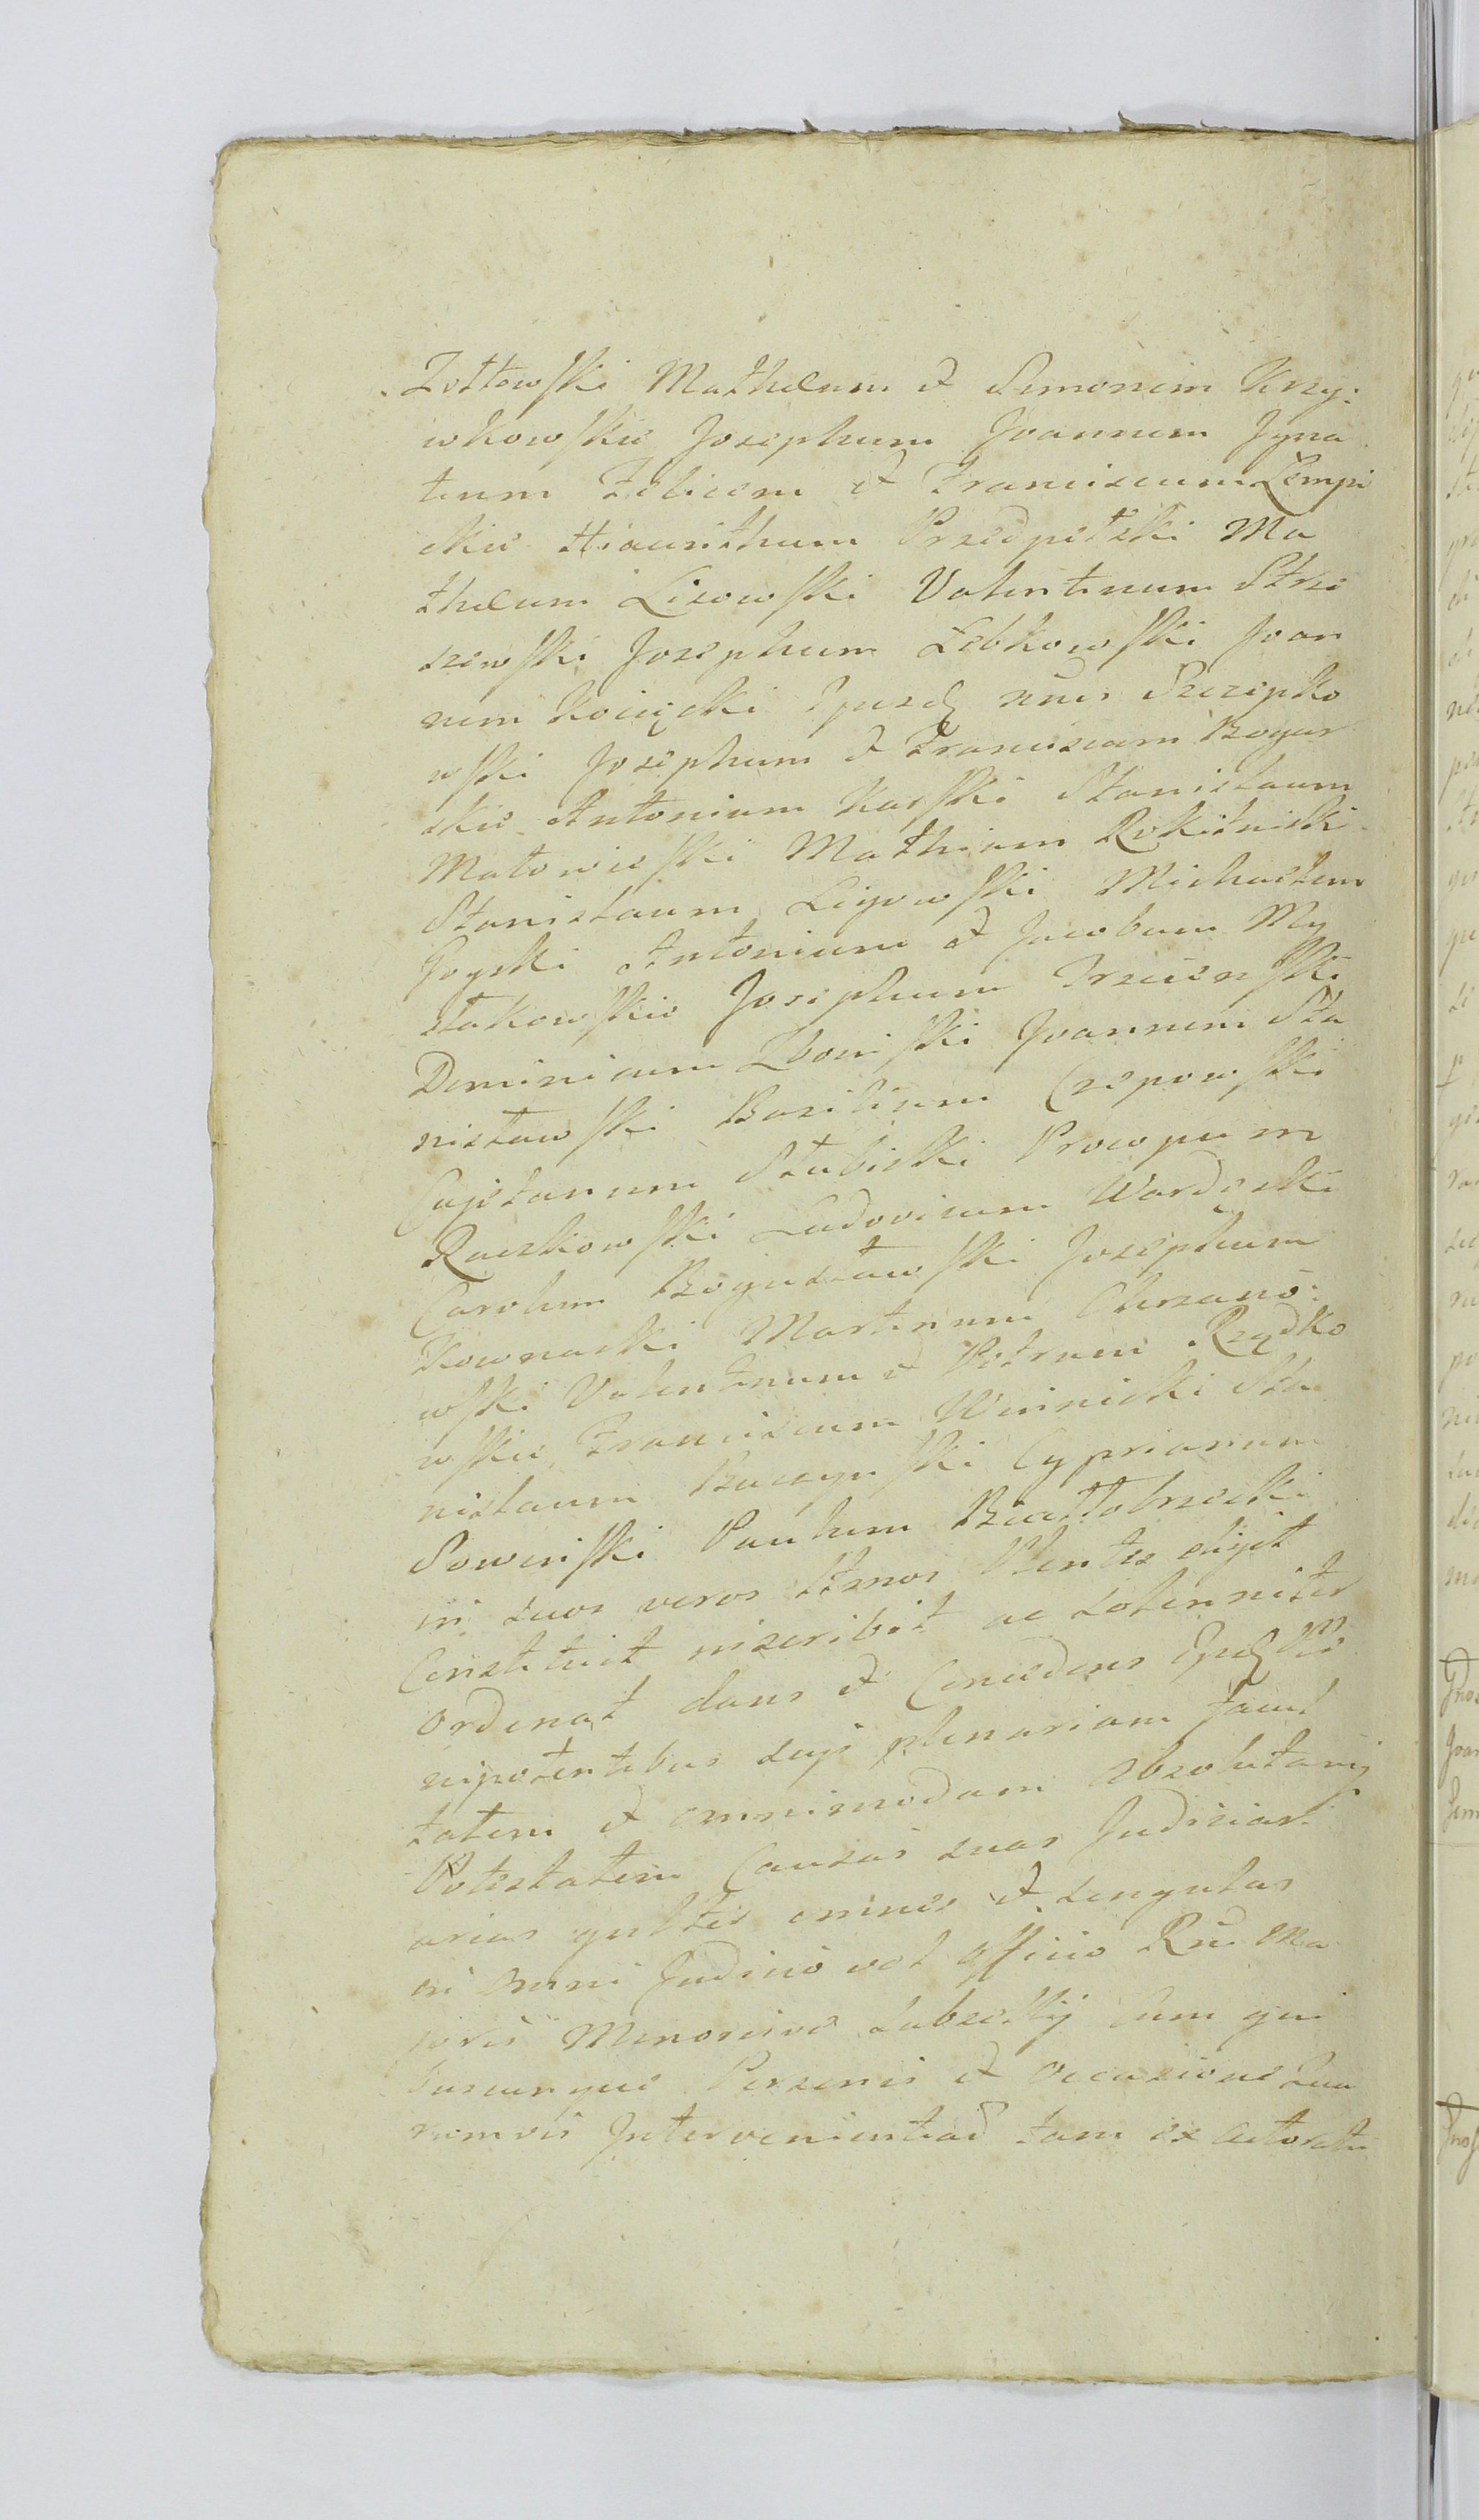 Zołtowski Mathæum et Simonem Krzy:
wkowskie Josephum Joannem Igna
tium Felicem et Franciscum Łempi
ckie Hiacinthum Przedpełski Ma
thæum Lisowski Valentinum Strze
szewski Josephum Łebkowski Joan
nem Kosięcki Szczepko
wski Josephum et Franciscum Bogar
skie Antonium Karski Stanisłaum
Małowieski Mathiam Rokitnicki
Stanislaum Ligowski Michaelem
Goyski Antonium et Jacobum My
słakowskie Josephum Trzcienski
Dominicum Zboinski Joannem Sta
nisławski Basilium Czepowski
Cajetanum Słubicki Procopium
Raczkowski Ludovicum Wardęski
Carolum Bogusławski Josephum
Kownacki Martinum Chrzano:
wski Valentinum et Petrum Rządko
wskie Franciscum Winnicki Sta
nislaum Buczynski Cyprianum
Sowinski Paulum Białłobrzecki
in suos veros Plentes eligit
Constituit inscribit ac solenniter
Ordinat dans et Concedens Ple
nipotentibus suis plenariam facul
tatem et omnimodam absolutamq
Potestatem Causas suas Judici
arias omnes et singulas
in omni Judicio vel Officio Rni Ma
joris Minorisve Subsellij cum qui
buscunque Personis et Occasione qua
rumvis tam ex actoratu